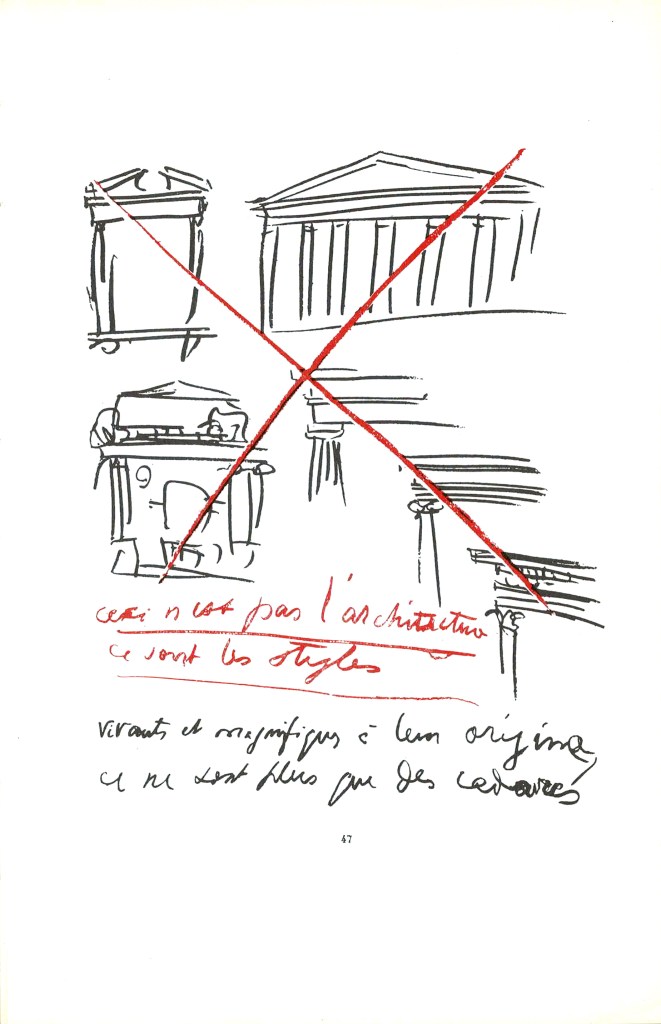 ceci n'est pas l'architecture
ce sont les styles
vivants et magnifiques à leur origine,
ce ne sont plus que des cadavres
47